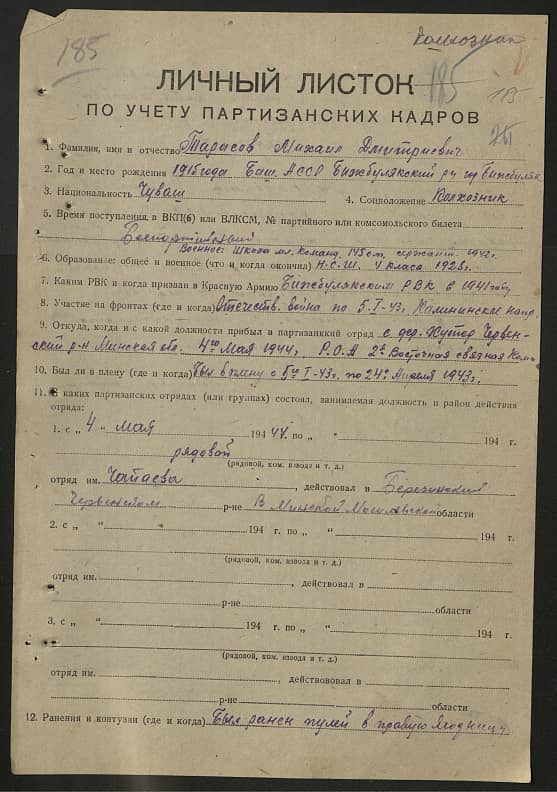 185
Колхозник
185
115
ЛИЧНЫЙ ЛИСТОК
ПО УЧЕТУ ПАРТИЗАНСКИХ КАДРОВ
1. Фамилия, имя и отчество Тарасов Михаил Дмитриевич
2. Год и место рождения 1915 года Баш. АССР Бижбулякский р-н Бижбуляк
3. Национальность Чуваш 4. Соцположение Колхозник
5. Время поступления в ВКП(б) или ВЛКСМ, № партийного или комсомольского билета
Беспартийный
Военное: Школа мл. Команд. 145 с.п. сержант 1942г.
6. Образование: общее и военное (что и когда окончил) Н.С.Ш. 4 класа 1928г.
7. Каким РВК и когда призван в Красную Армию Бижбулякским РВК в 1941 году
8. Участие на фронтах (где и когда) Отечеств. война по 5.I-43г. Калининское напр.
9. Откуда, когда и с какой должности прибыл в партизанский отряд с дер. Хутор Червен-
ский р-н Минская обл. 4го Мая 1944г. Р.О.А 2я Восточная связная Комп
10. Был ли в плену (где и когда) Был в плену с 5го I-43г. по 24е Апреля 1943г.
11. В каких партизанских отрядах (или группах) состоял, занимаемая должность и район действия
отряда:
1. с „ 4 " мая 1944 г. по „ " 194 г.
рядовой
(рядовой, ком. взвода и т. д.)
отряд им. Чапаевы , действовал в Березинский
Червенском р-не В Минской Могилевской области
2. с „ " 194 г. по „ " 194 г.
(рядовой, ком. взвода и т. д.)
отряд им. , действовал в
р-не области
3. с „ " 194 г. по „ " 194 г.
(рядовой, ком. взвода и т. д.)
отряд им. , действововал в
р-не области
12. Ранения и контузии (где и когда) Был ранен пулей в правую ягодницу